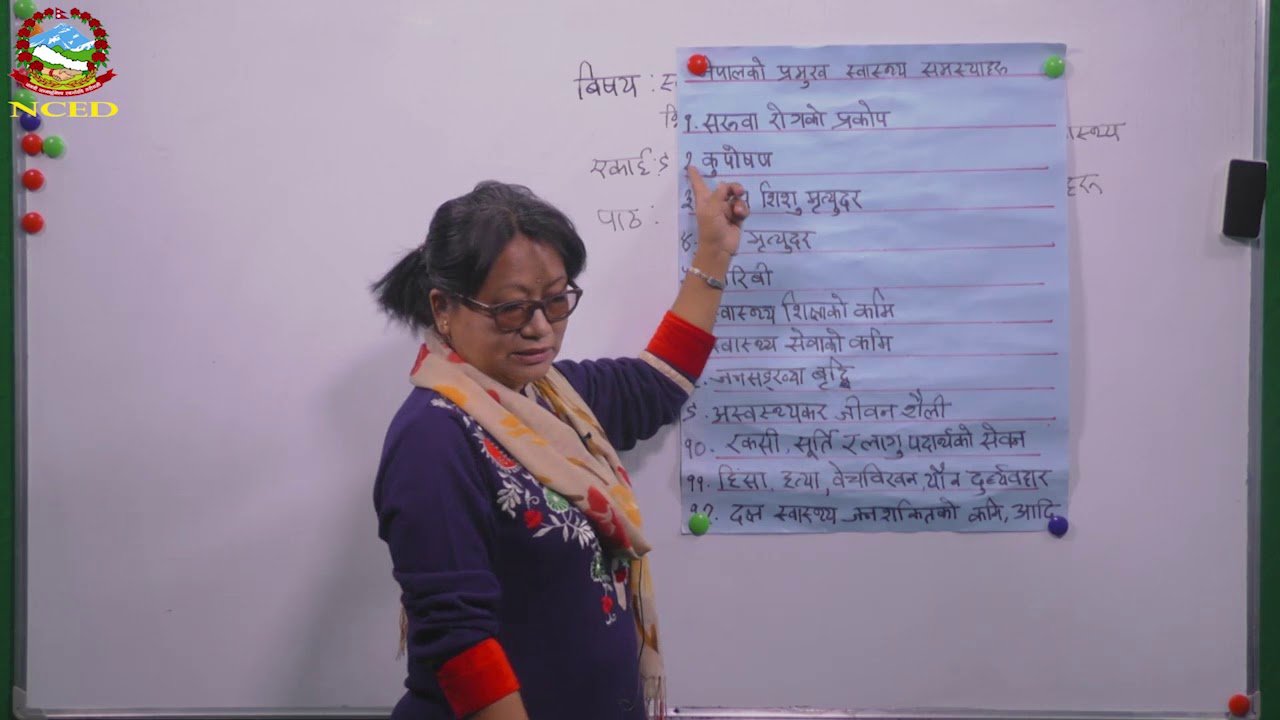 NCED
विषय :
नेपालको प्रमुख स्वास्थ्य समस्याहरू
१. सरुवा रोगको प्रकोप
स्वास्थ्य
एकाई : ९
२ कुपोषण
३ शिशु मृत्युदर
हरू
पाठ :
४. मृत्युदर
गरिबी
स्वास्थ्य शिक्षाको कमि
स्वास्थ्य सेवाको कमि
जनसङ्ख्या बृद्धि
९. अस्वस्थ्यकर जीवन शैली
१०. रकसी, सूर्ति र लागु पदार्थको सेवन
११. हिंसा, हत्या, वेचविखन, यौन दुर्ब्यवहार
१२. दक्ष स्वास्थ्य जनशक्तिको कमि, आदि